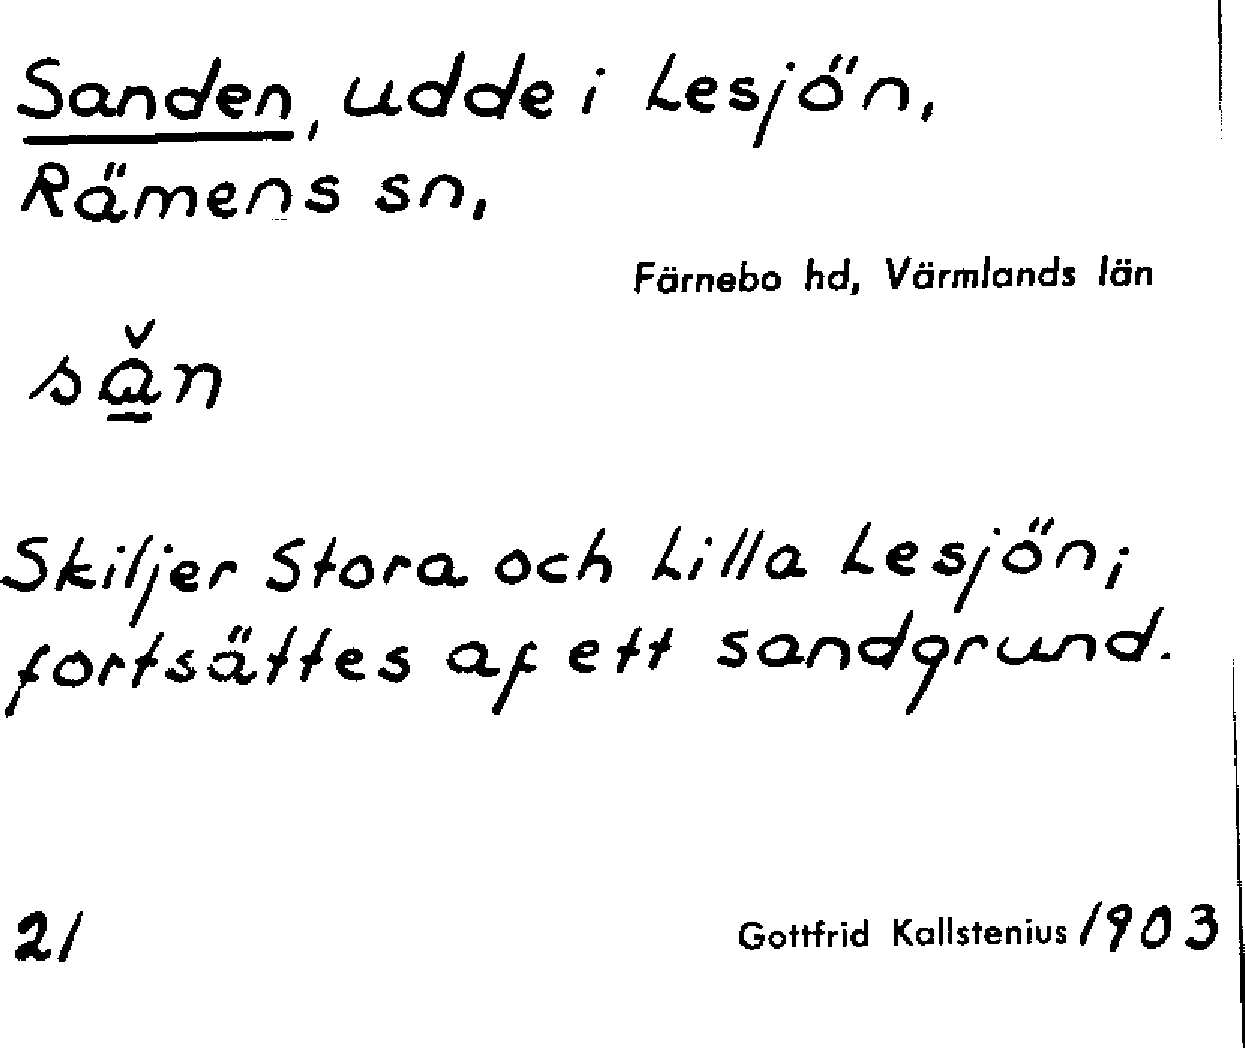 Sanden, udde i Lesjön,
Rämens sn,
Färnebo hd, Värmlands län
sǎ̱n
Skiljer Stora och Lilla Lesjön;
fortsättes af ett sandgrund.
21 Gottfrid Kallstenius 1903